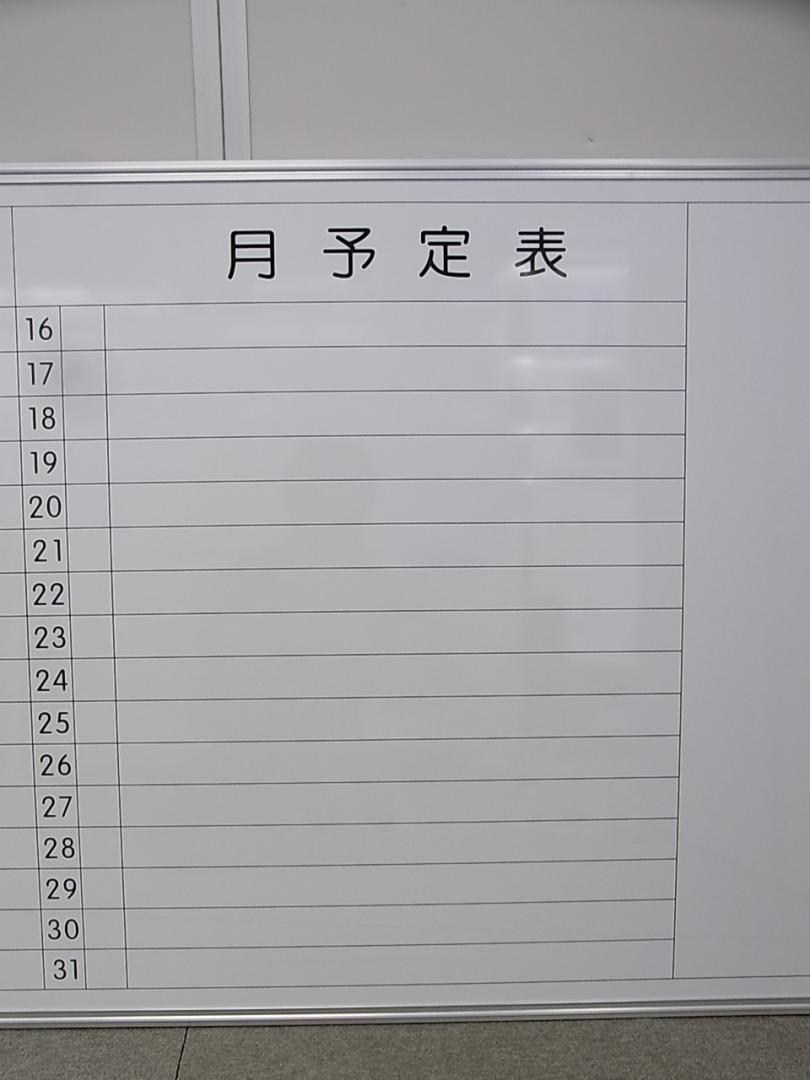 月予定表
16
17
18
19
20
21
22
23
24
25
26
27
28
29
30
31